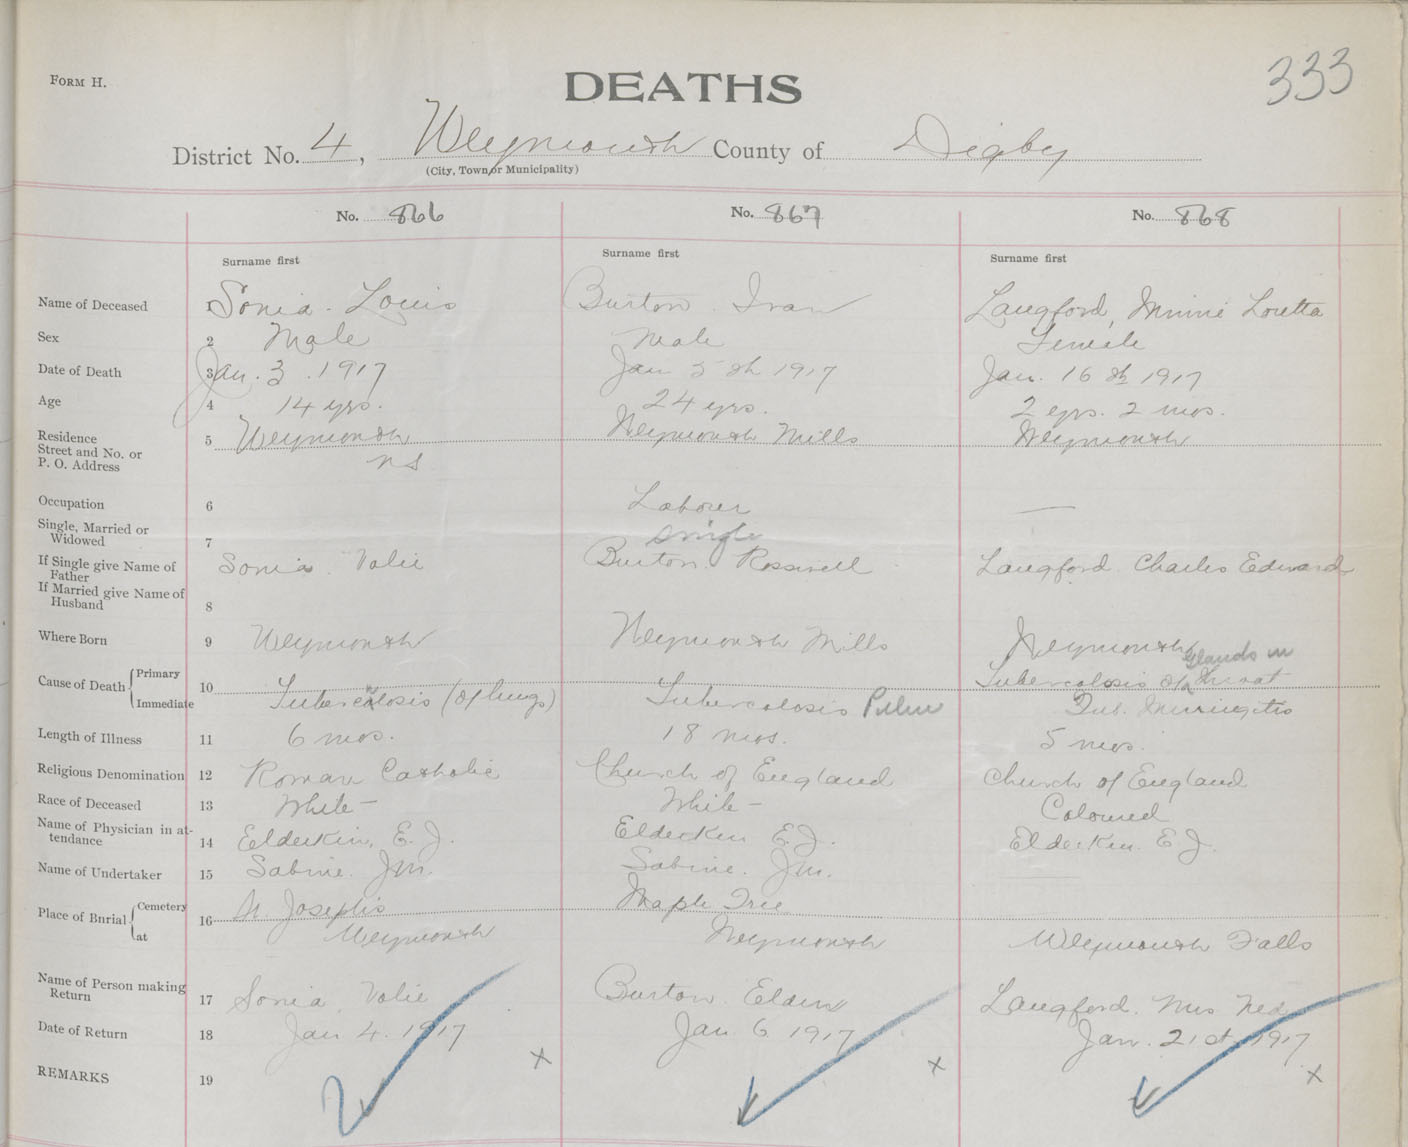 FORM H.
DEATHS
333
District No. 4, Weymouth County of Digby
(City, Town, or Municipality)
No. 866 No. 867 No. 868
Surname first Surname first Surname first
Name of Deceased 1 Sonia. Louis Burton. Ivan Langford, Minnie Loretta
Sex 2 Male Male Female
Date of Death 3 Jan. 3. 1917 Jan 5th 1917 Jan. 16th 1917
Age 4 14 yrs. 24 yrs. 2 yrs. 2 mos.
Residence 5 Weymouth Weymouth Mills Weymouth
Street and No. or
P. O. Address NS
Occupation 6 Laborer —
Single, Married or
Widowed 7 Single
If Single give Name of Sonia. Valie Burton. Rosswell Langford. Charles Edward
Father
If Married give Name of
Husband 8
Where Born 9 Weymouth Weymouth Mills Weymouth
Cause of Death Primary glands in
10 Tuberculosis (of lungs) Tuberculosis Pulm Tuberculosis of throat
Immediate Tub. Meningitis
Length of Illness 11 6 mos. 18 mos. 5 mos.
Religious Denomination 12 Roman Catholic Church of England Church of England
Race of Deceased 13 White — White — Coloured
Name of Physician in at-
tendance 14 Elderkin, E. J. Elderkin E. J. Elderkin. E J.
Name of Undertaker 15 Sabine. Jm. Sabine. Jm.
Place of Burial Cemetery 16 St. Josephs Maple Tree
at Weymouth Weymouth Weymouth Falls
Name of Person making
Return 17 Sonia Valie Burton. Elden Langford. Mrs Ned
Date of Return 18 Jan 4. 1917 Jan. 6 1917 Jan. 21st 1917
x x x
REMARKS 19